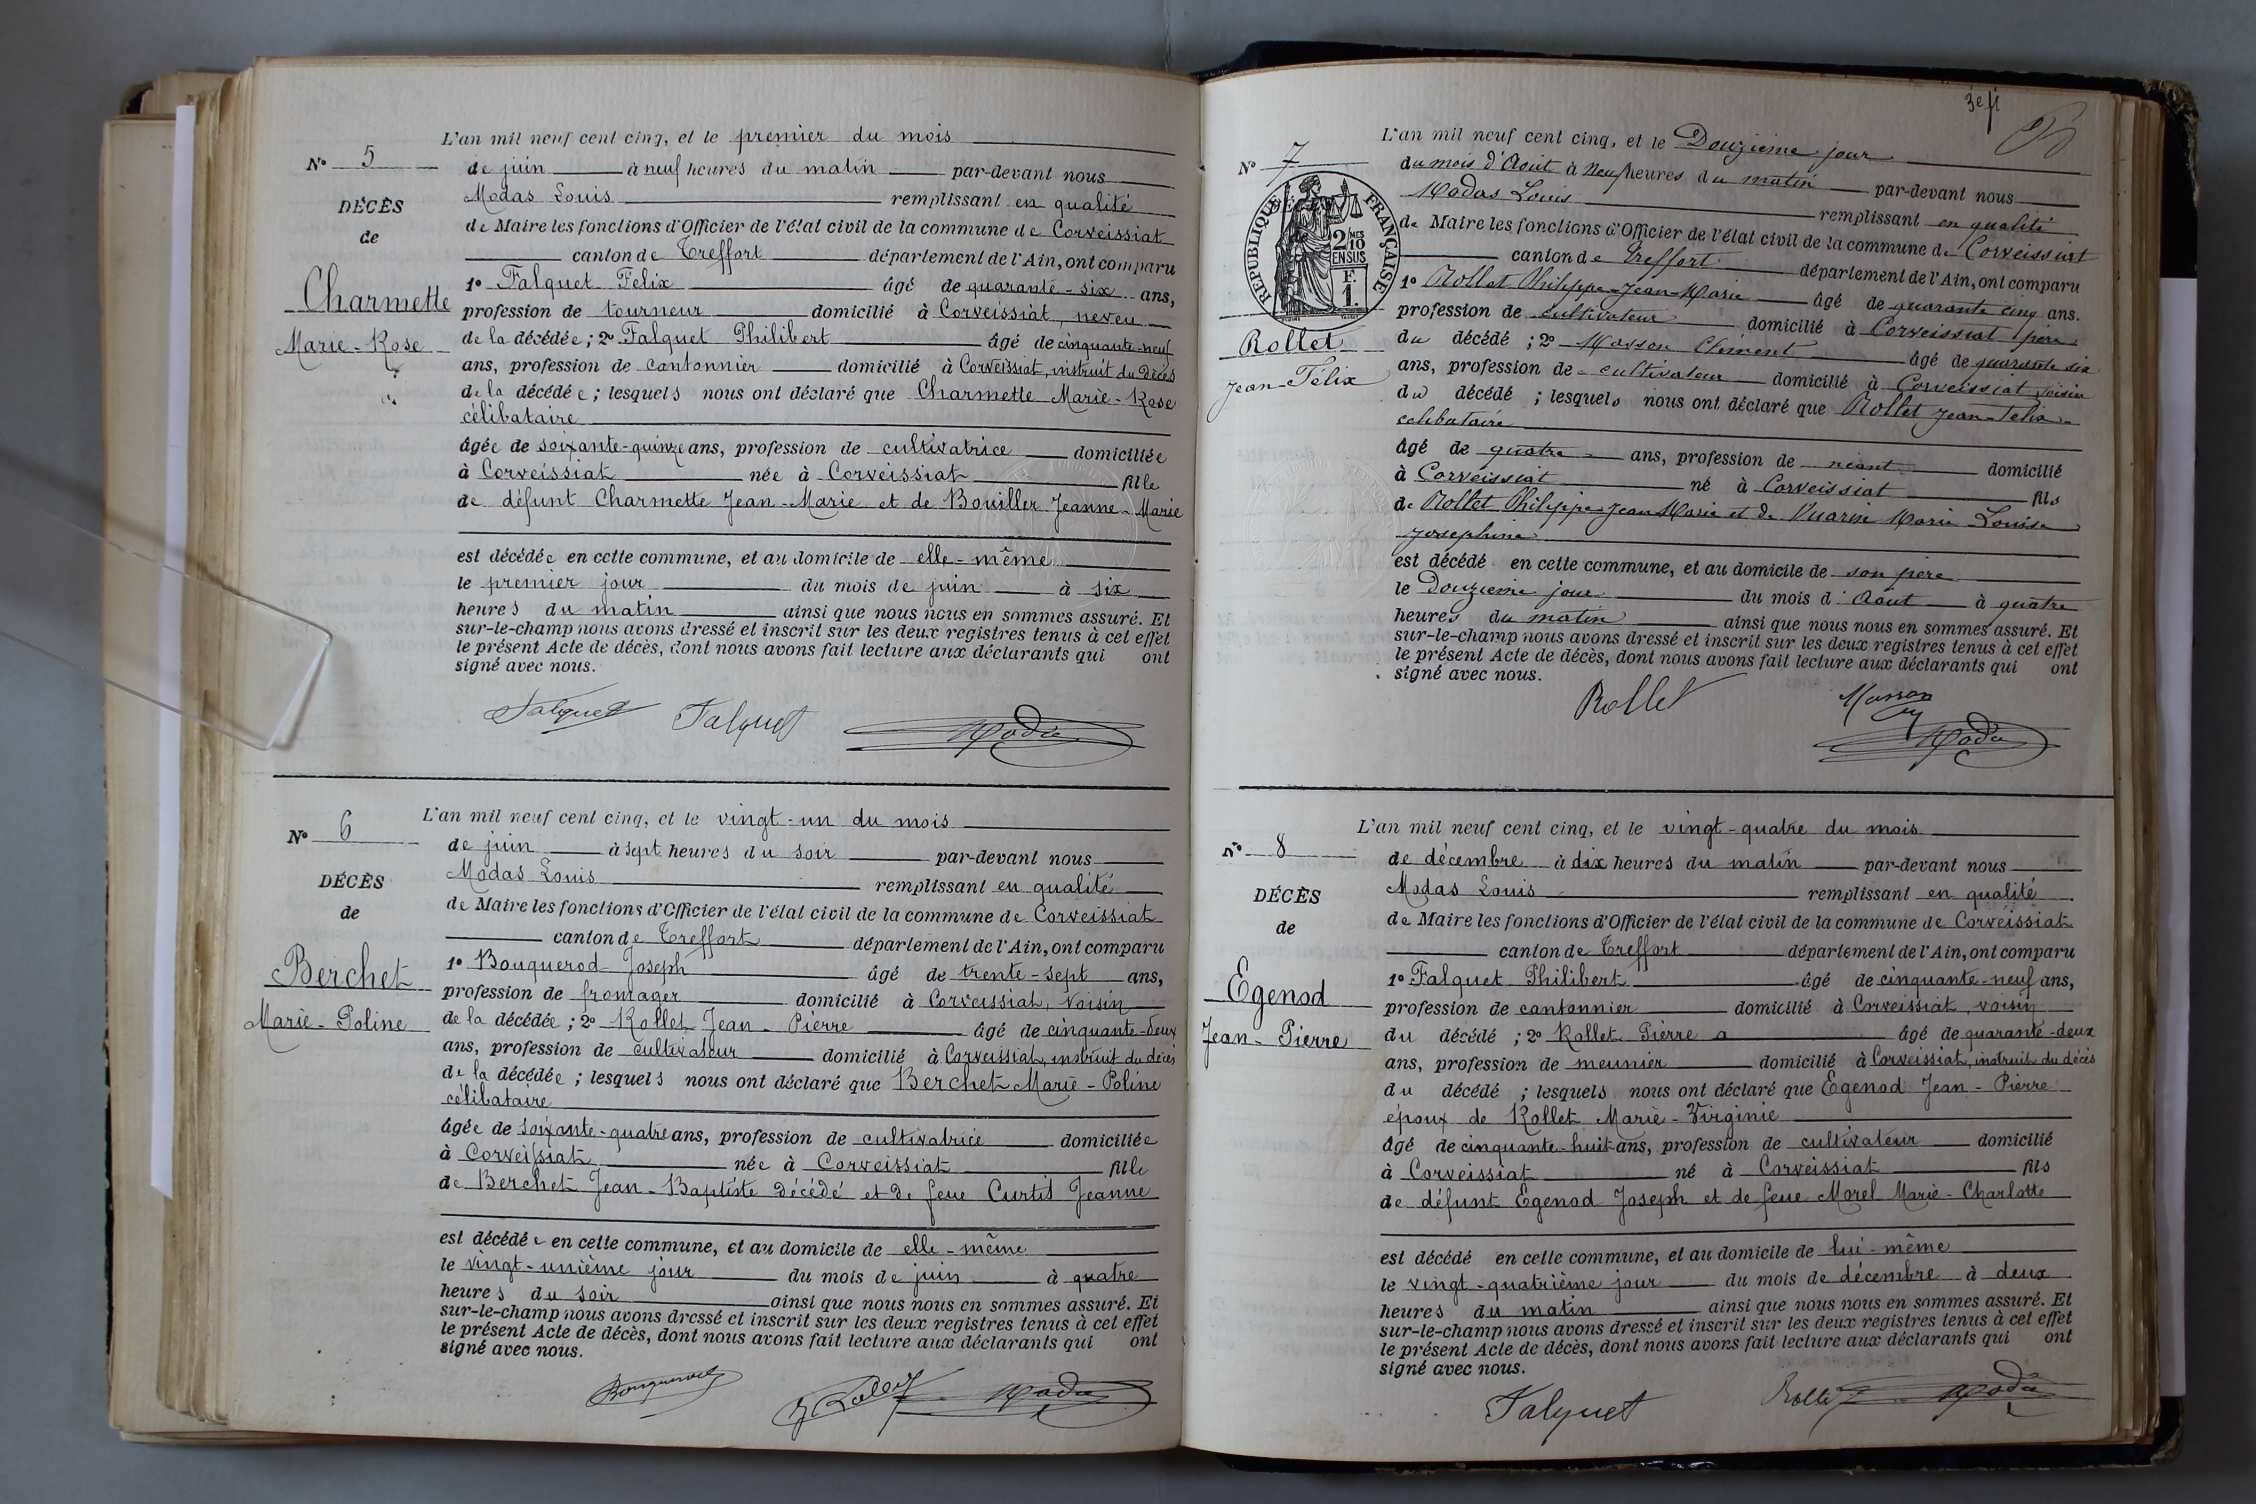 L'an mil neuf cent cinq, et le premier du mois
N° 5
de juin à neuf heures du matin par-devant nous
Modas Louis remplissant en qualité
DÉCÈS
de Maire les fonctions d'Officier de l'état civil de la commune de Corveissiat
de
canton de Treffort département de l'Ain, ont comparu
1° Falquet Félix âgé de quarante-six ans,
Charmette
profession de tourneur domicilié à Corveissiat, neveu
Marie-Rose
de la décédée; 2° Falquet Philibert âgé de cinquante-neuf
ans, profession de cantonnier domicilié à Corveissiat, instruit du décès
de la décédée; lesquels nous ont déclaré que Charmette Marie-Rose
célibataire
âgée de soixante-quinze ans, profession de cultivatrice domiciliée
à Corveissiat née à Corveissiat fille
de défunt Charmette Jean-Marie et de Bouiller Jeanne-Marie
est décédée en cette commune, et au domicile de elle-même
le premier jour du mois de juin à six
heures du matin ainsi que nous nous en sommes assuré. Et
sur-le-champ nous avons dressé et inscrit sur les deux registres tenus à cet effet
le présent Acte de décès, dont nous avons fait lecture aux déclarants qui ont
signé avec nous.
Falquet Falquet Modas
L'an mil neuf cent cinq, et le vingt-un du mois
N° 6
de juin à sept heures du soir par-devant nous
Modas Louis remplissant en qualité
DÉCÈS
de Maire les fonctions d'Officier de l'état civil de la commune de Corveissiat
de
canton de Treffort département de l'Ain, ont comparu
Berchet
1° Bouquerod Joseph âgé de trente-sept ans,
profession de fromager domicilié à Corveissiat, voisin
Marie-Poline
de la décédée; 2° Rollet Jean-Pierre âgé de cinquante-deux
ans, profession de cultivateur domicilié à Corveissiat, instruit du décès
de la décédée; lesquels nous ont déclaré que Berchet Marie-Poline
célibataire
âgée de soixante-quatre ans, profession de cultivatrice domiciliée
à Corveissiat née à Corveissiat fille
de Berchet Jean-Baptiste décédé et de feue Curtil Jeanne
est décédée en cette commune, et au domicile de elle-même
le vingt-unième jour du mois de juin à quatre
heures du soir ainsi que nous nous en sommes assuré. Et
sur-le-champ nous avons dressé et inscrit sur les deux registres tenus à cet effet
le présent Acte de décès, dont nous avons fait lecture aux déclarants qui ont
signé avec nous.
Bouquerod J Rollet Modas
3e f
L'an mil neuf cent cinq, et le Douzième jour
N° 7
du mois d'Août à neuf heures du matin par-devant nous
Modas Louis remplissant en qualité
RÉPUBLIQUE FRANÇAISE
2/10MES EN SUS
F. 1.
de Maire les fonctions d'Officier de l'état civil de la commune de Corveissiat
canton de Treffort département de l'Ain, ont comparu
1° Rollet Philippe-Jean-Marie âgé de quarante cinq ans.
profession de cultivateur domicilié à Corveissiat père
Rollet
du décédé; 2° Masson Clément âgé de quarante six
Jean-Félix
ans, profession de cultivateur domicilié à Corveissiat voisin
du décédé; lesquels nous ont déclaré que Rollet Jean-Felix
celibataire
âgé de quatre ans, profession de néant domicilié
à Corveissiat né à Corveissiat fils
de Rollet Philippe-Jean Marie et de Vuarin Marie Louise
Josephine
est décédé en cette commune, et au domicile de son père
le Douzième jour du mois d'Août à quatre
heures du matin ainsi que nous nous en sommes assuré. Et
sur-le-champ nous avons dressé et inscrit sur les deux registres tenus à cet effet
le présent Acte de décès, dont nous avons fait lecture aux déclarants qui ont
signé avec nous.
Rollet Masson
Modas
L'an mil neuf cent cinq, et le vingt-quatre du mois
N° 8
de décembre à dix heures du matin par-devant nous
Modas Louis remplissant en qualité
DÉCÈS
de Maire les fonctions d'Officier de l'état civil de la commune de Corveissiat
de
canton de Treffort département de l'Ain, ont comparu
1° Falquet Philibert âgé de cinquante-neuf ans,
Egenod
profession de cantonnier domicilié à Corveissiat, voisin
Jean-Pierre
du décédé; 2° Rollet Pierre a âgé de quarante-deux
ans, profession de meunier domicilié à Corveissiat, instruit du décès
du décédé; lesquels nous ont déclaré que Egenod Jean-Pierre
époux de Rollet Marie-Virginie
âgé de cinquante-huit ans, profession de cultivateur domicilié
à Corveissiat né à Corveissiat fils
de défunt Egenod Joseph et de feue Morel Marie-Charlotte
est décédé en cette commune, et au domicile de lui-même
le vingt-quatrième jour du mois de décembre à deux
heures du matin ainsi que nous nous en sommes assuré. Et
sur-le-champ nous avons dressé et inscrit sur les deux registres tenus à cet effet
le présent Acte de décès, dont nous avons fait lecture aux déclarants qui ont
signé avec nous.
Falquet Rollet Modas